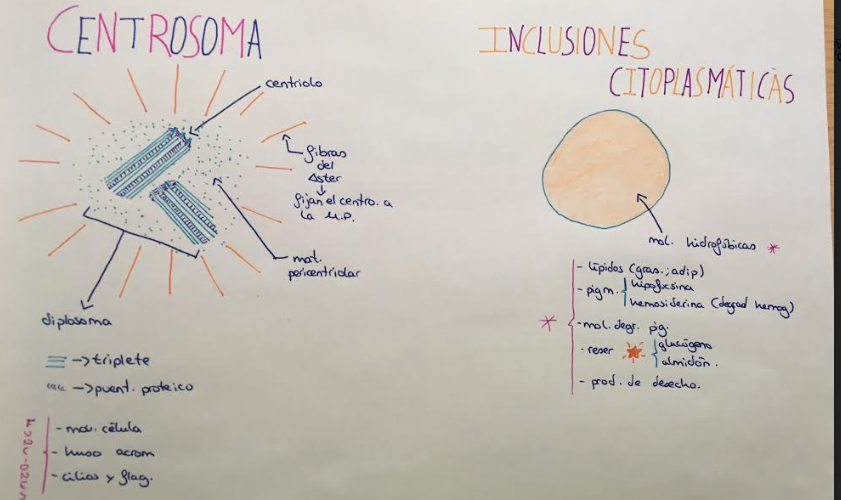 CENTROSOMA
centriolo
fibras
del
Áster
fijan el centro. a
la M.P.
mat.
pericentriolar
diplosoma
→ triplete
→ puent. proteico
- mov. célula
- huso acrom
- cilios y flag.
INCLUSIONES
CITOPLASMÁTICAS
mol. hidrofóbicas *
*
- lípidos (gras.; adip)
- pigm.
hemosiderina (degrad hemog)
- mol. degr. pig.
- reser
glucógeno
almidón.
- prod. de desecho.